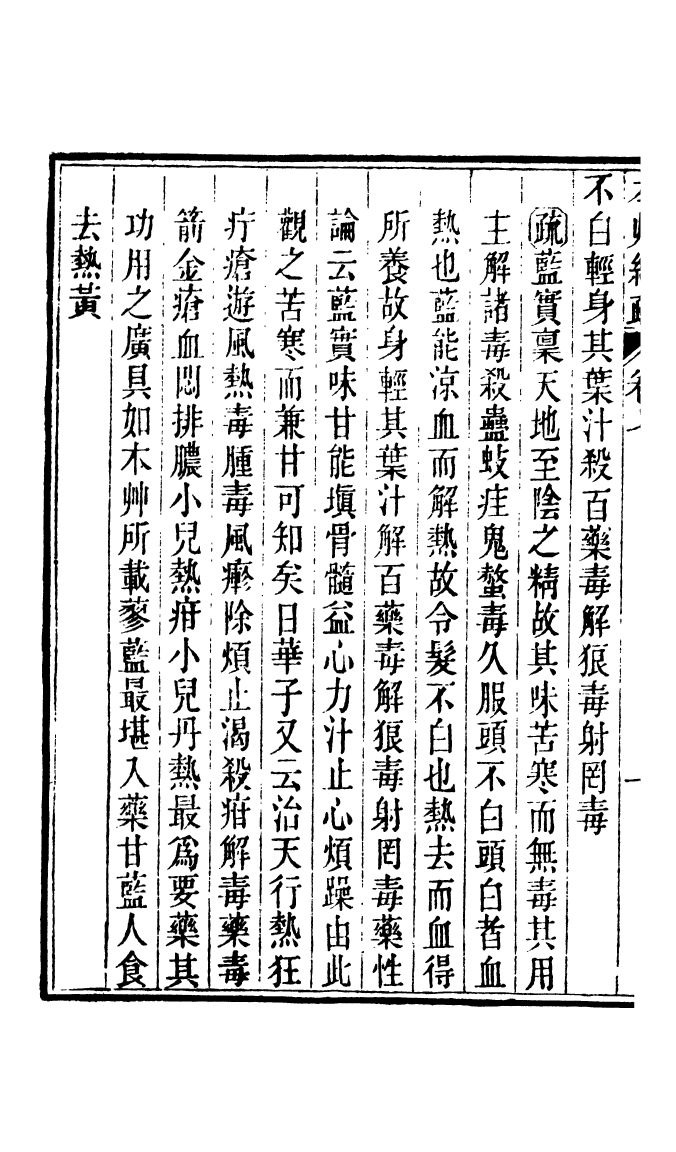 不白輕身其葉汁殺百藥毒解狼毒射罔毒
疏藍實稟天地至陰之精故其味苦寒而無毒其用
主解諸毒殺蠱蚑疰鬼螫毒久服頭不白頭白者血
熱也藍能涼血而解熱故令髮不白也熱去而血得
所養故身輕其葉汁解百藥毒解狼毒射罔毒藥性
論云藍實味甘能塡骨髓益心力汁止心煩躁由此
觀之苦寒而兼甘可知矣日華子又云治天行熱狂
疔瘡遊風熱毒腫毒風癊除煩止渴殺疳解毒藥毒
箭金瘡血悶排膿小兒熱疳小兒丹熱最爲要藥其
功用之廣具如本艸所載蓼藍最堪入藥甘藍人食
去熱黃